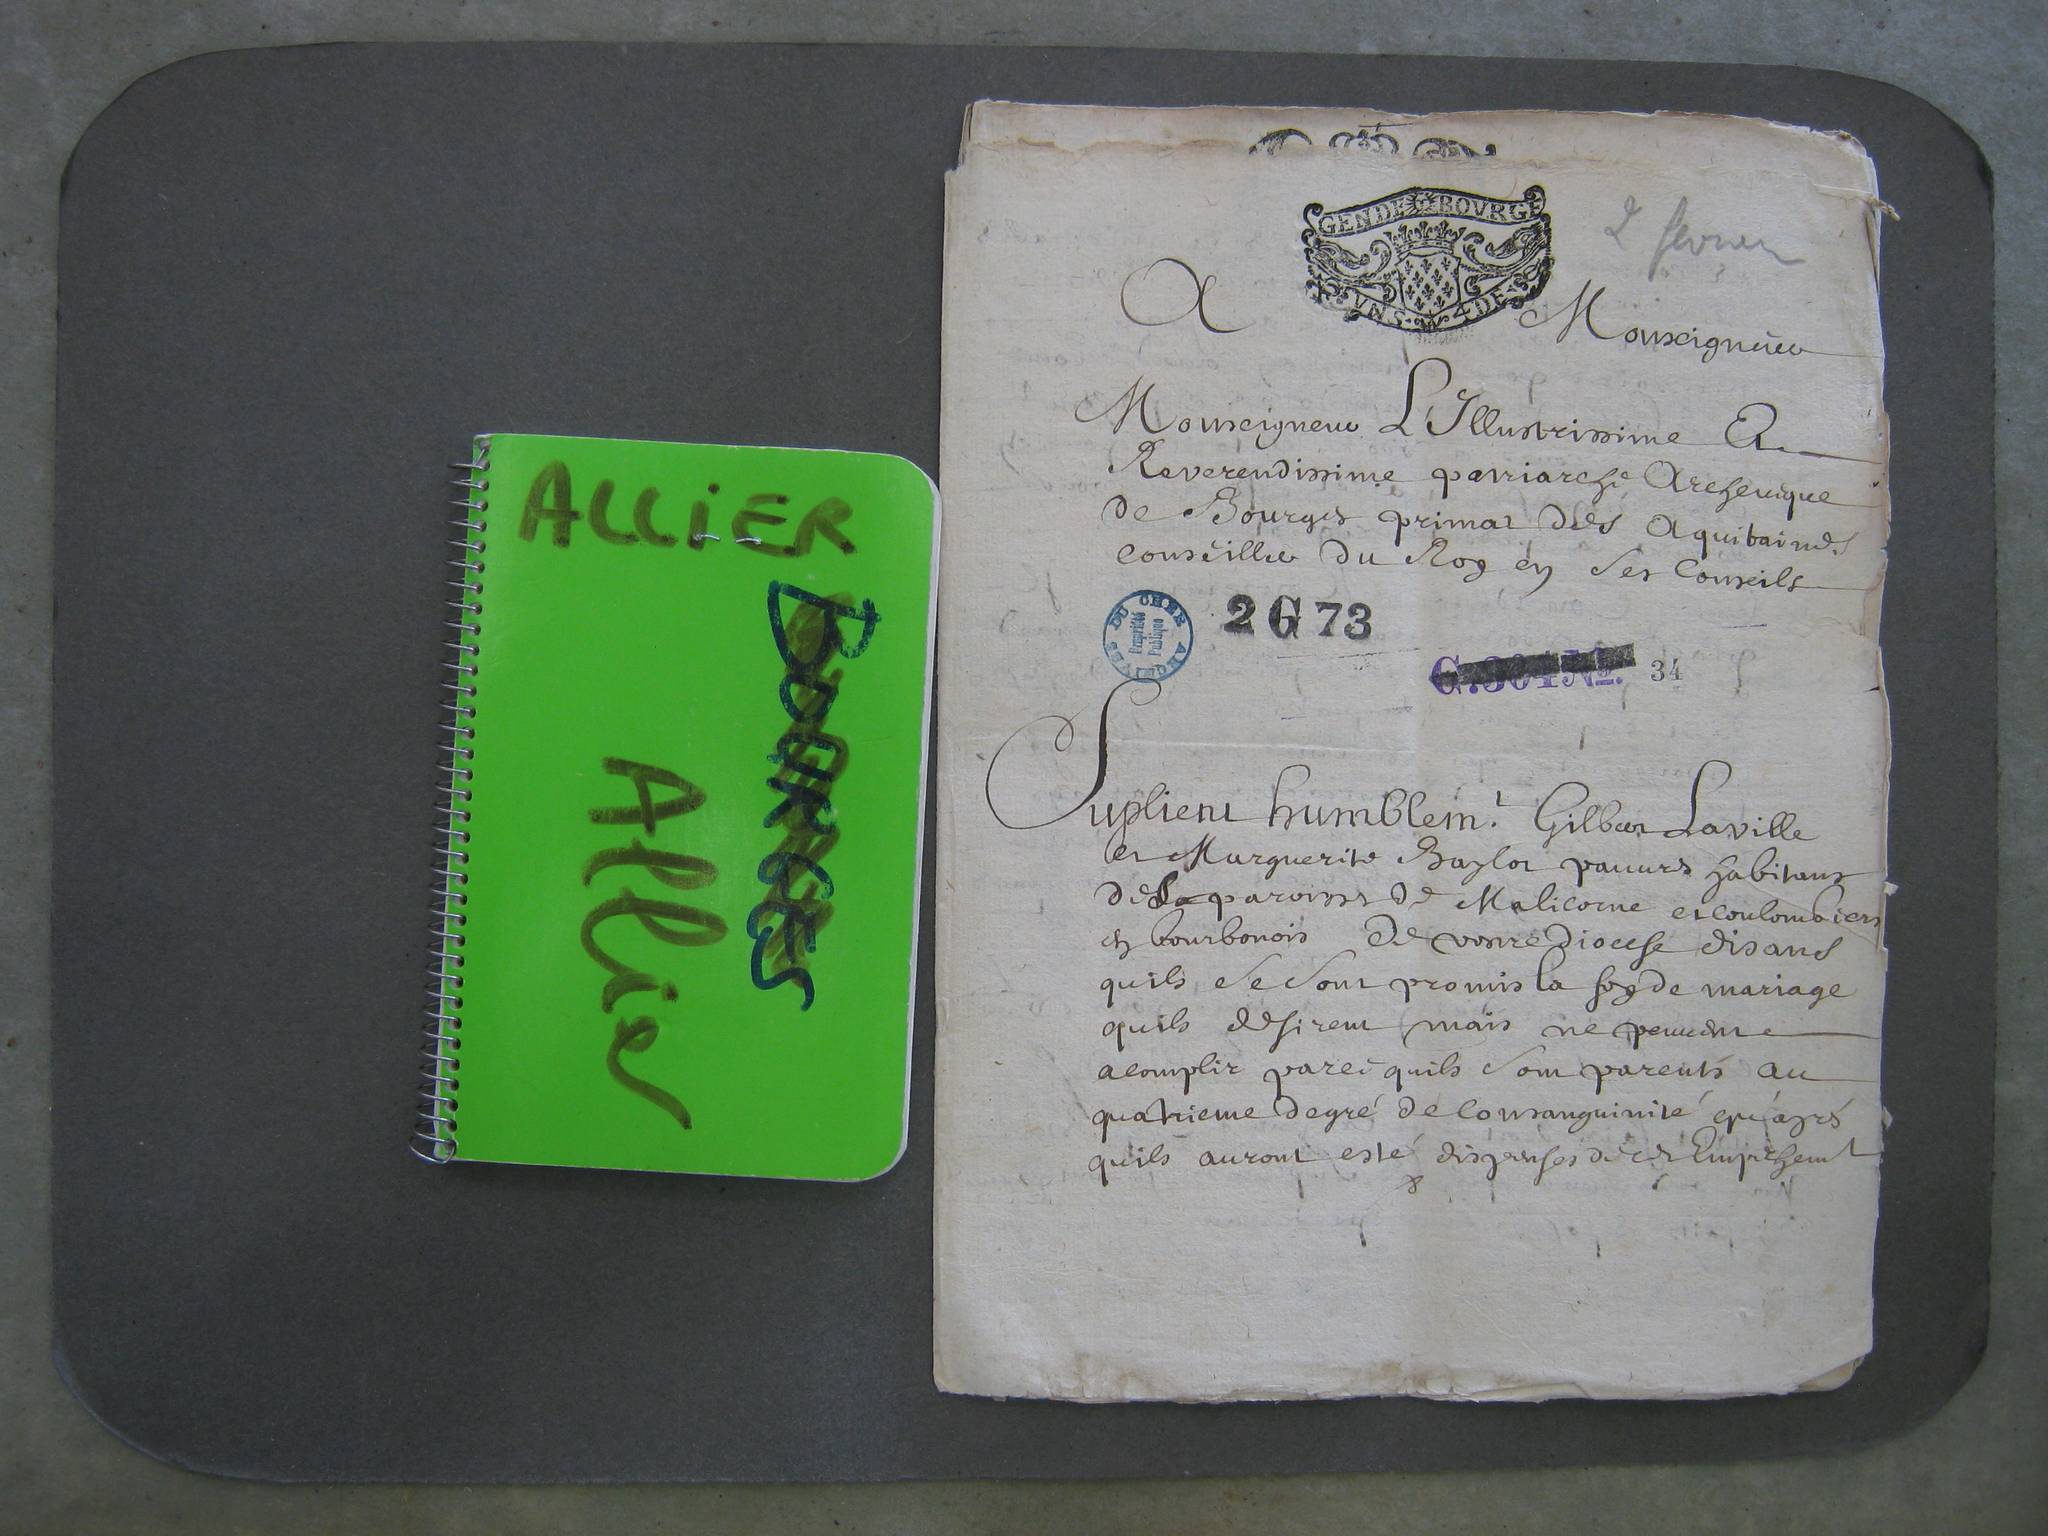 ALLiER
BOURGES
Allier
GENDE BOVRGE
VNS 4 DE S
2 fevrier
A Monseigneur
Monseigneur L'Illustrissime Et
Reverendissime patriarche Archeuêque
de Bourges primat des Aquitaines
Conseiller du Roy en ses Conseils
ARCHIVES DU CHER
Propriété
Publique
2 G 73
G.304 No. 34
Suplient humblemt. Gilber Laville
et Marguerite Baylot pauures habitans
de La paroisse de Malicorne et coulombiers
en bourbonois de vostre Diocese disans
quils se sont promis la foy de mariage
quils desirent mais ne peuuent
acomplir parce quils sont parents au
quatrieme degré de Consanguinité qu'apres
quils auront esté dispenses de cet Empeschemt